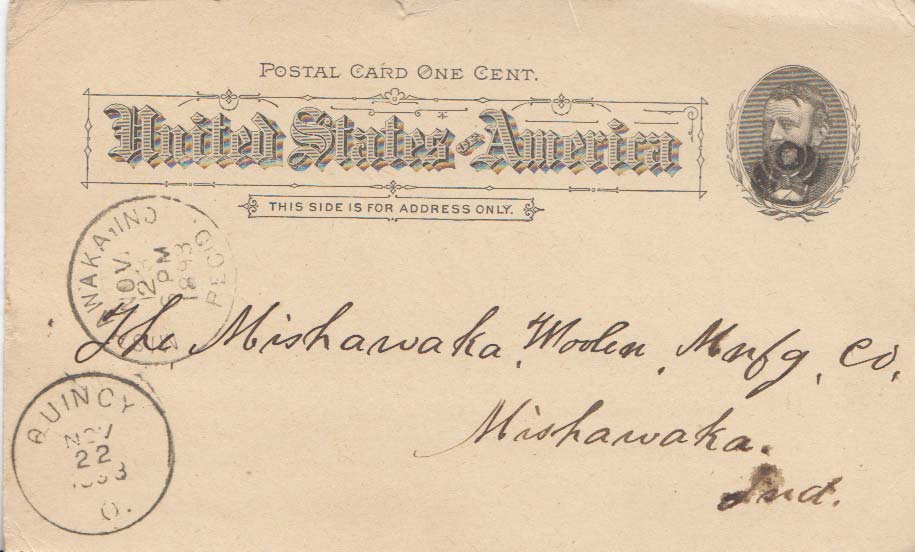 POSTAL CARD ONE CENT.
United States OF America
THIS SIDE IS FOR ADDRESS ONLY.
AWAKA, IND
REC'D
NOV.
6 PM
1893
The Mishawaka Woolen Mnfg. Co,
Mishawaka.
Ind.
QUINCY
NOV
22
1893
O.